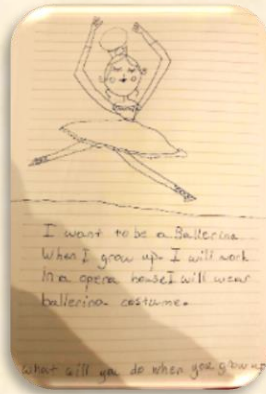 I want to be a Ballerina
When I grow up. I will work
In a opera house I will wear
ballerina costume.
what will you do when you grow up